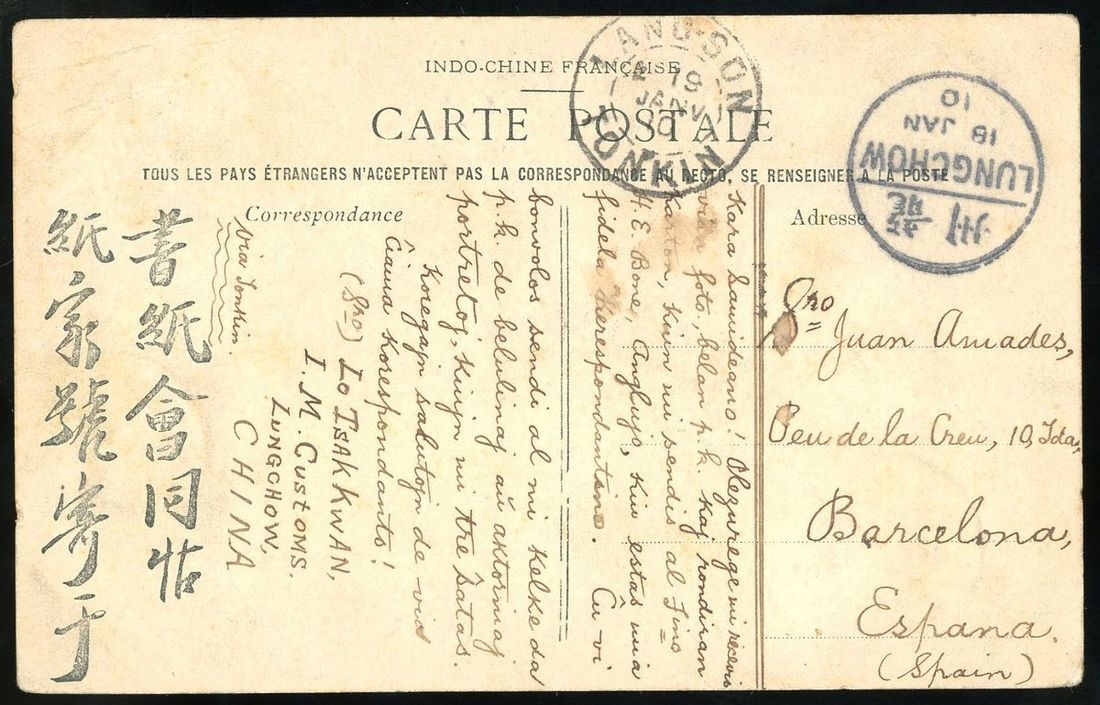 INDO-CHINE FRANÇAISE
CARTE POSTALE
TOUS LES PAYS ÉTRANGERS N'ACCEPTENT PAS LA CORRESPONDANCE AU RECTO, SE RENSEIGNER A LA POSTE
Correspondance
Adresse
LANG-SON
19
JANV
10
TONKIN
LUNGCHOW
18 JAN
10
Kara Samideano! Plezurege mi ricevis
vian foto, belan p.k. kaj rondiran
karton, kiun mi sendis al Fino
H.E. Bone, Anglujo, kiu estas mia
fidela kherespondantino. Ĉu vi
bonvolos sendi al mi kelke da
p.k. de belulinaj aŭ aktorinaj
portretoj, kiujn mi tre ŝatas.
Koregajn salutojn de via
ĉiama korespondanto!
(Sro) Lo Tsak Kwan,
I. M. Customs.
Lungchow,
CHINA
via Tonkin.
書紙會同
紙家號寄于
Sro Juan Amades,
Peu de la Creu, 10, Ida,
Barcelona,
Espana.
(Spain)